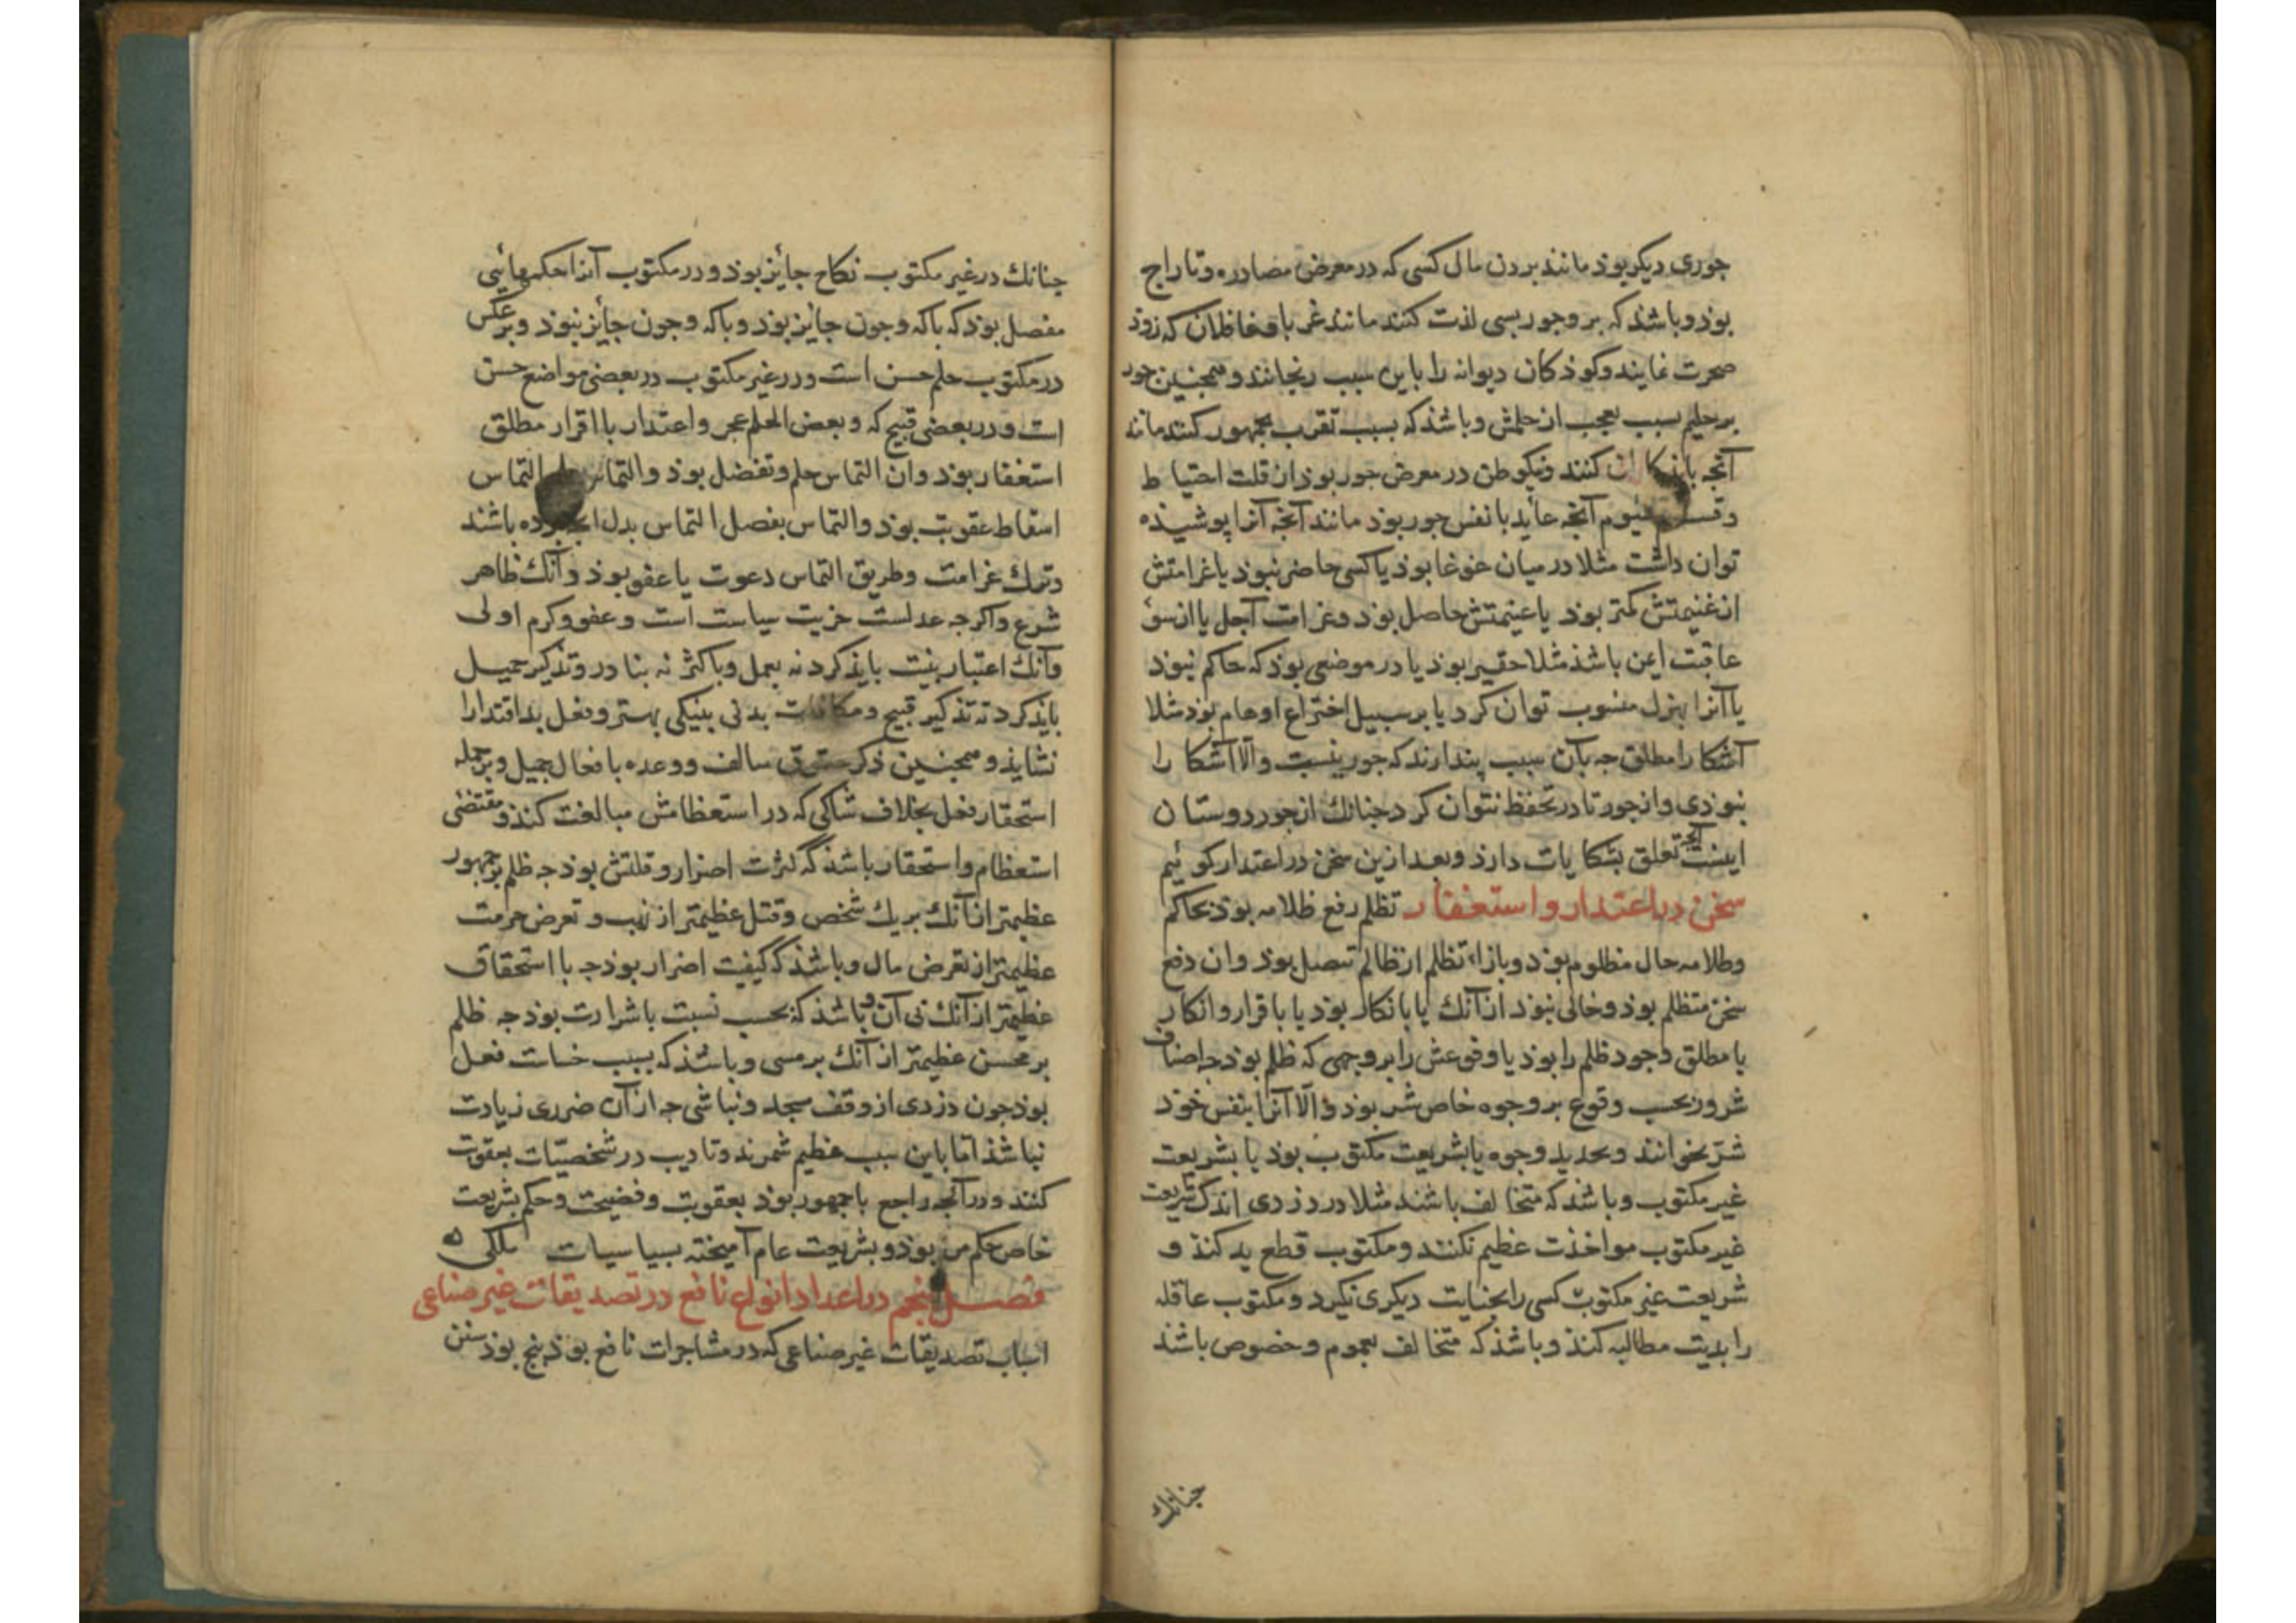 جوری دیگر بوذ مانند بردن مال کسی که در معرض مصادره و تاراج
بوذ و باشذ که بر وجور بسی لذت کنند مانند غربا و غافلان که زوذ
ضجرت نمایند و کوذکان دیوانه را باین سبب رنجانند و همجنین جور
بر حلیم بسبب تعجب از حلمش و باشذ که بسبب تقرب بجمهور کنند مانند
آنجه با کنند و نیکو ظن در معرض جور بوذ از قلت احتیاط
و قسم سیوم آنجه عاید با نفس جور بوذ مانند آنجه آنرا پوشیذه
توان داشت مثلا در میان غوغا بوذ یا کسی حاضر نبوذ یا غرامتش
از غنیمتش کمتر بوذ یا غنیمتش حاصل بوذ و غرامت آجل یا از سؤ
عاقبت ایمن باشذ مثلا حقیر بوذ یا در موضعی بوذ که حاکم نبوذ
یا آنرا بهزل منسوب توان کرد یا بر سبیل اختراع اوهام بوذ مثلا
آشکارا مطلق جه بآن سبب پندارند که جور نیست و الا آشکارا
نبوذی و از جور نادر تحفظ نتوان کرد جنانك از جور دوستان
اینست آنجه تعلق بشکایات دارذ و بعد ازین سخن در اعتدار کوئیم
سخن در اعتدار و استغفار تظلم رفع ظلامه بوذ بحاکم
و ظلامه حال مظلوم بوذ و بازاء تظلم از ظالم تنصل بوذ و ان دفع
سخن متظلم بوذ و خالی نبوذ از آنك یا بانکار بوذ یا باقرار و انکار
یا مطلق وجود ظلم را بوذ یا وقوعش را بر وجهی که ظلم بوذ جه اصناف
شرور بحسب وقوع بر وجوه خاص شر بوذ و الا آنرا بنفس خوذ
شر نخوانند و تحدید وجوه یا بشریعت مکتوب بوذ یا بشریعت
غیر مکتوب و باشذ که متخالف باشند مثلا در دزدی اندك شریعت
غیر مکتوب مواخذت عظیم نکنند و مکتوب قطع ید کنذ و
شریعت غیر مکتوب کسی را بجنایت دیکری نکیرد و مکتوب عاقله
را بدیت مطالبه کنذ و باشذ که متخالف بعموم و خصوص باشند
جنانك
جنانك در غیر مکتوب نکاح جایز بوذ و در مکتوب آنرا حکمهائی
مفصل بوذ که با که و جون جایز بوذ و با که و جون جایز نبوذ و بر عکس
در مکتوب حلم حسن است و در غیر مکتوب در بعضی مواضع حسن
است و در بعضی قبیح که و بعض الحلم عجز و اعتدار با اقرار مطلق
استغفار بوذ و ان التماس حلم و تفضل بوذ و التماس حلم التماس
اسقاط عقوبت بوذ و التماس تفضل التماس بدل باشند
و ترك غرامت و طریق التماس دعوت با عفو بوذ و آنك ظاهر
شرع و اکرجه عدلست جزیت سیاست است و عفو و کرم اولی
و آنك اعتبار بنیت بایذ کرد نه بعمل و باکثر نه بنادر و تذکیر جمیل
بایذ کرد نه تذکیر قبیح و مکافات بدی بنیکی بهتر و فعل بد اقتدا را
نشایذ و همجنین ذکر حقوق سالف و وعده بافعال جمیل و بر جمله
استحقار فعل بخلاف شاکی که در استعظامش مبالغت کنذ و مقتضی
استعظام و استحقار باشذ که کثرت اضرار و قلتش بوذ جه ظلم بر جمهور
عظیمتر از آنك بر یك شخص و قتل عظیمتر از نهب و تعرض حرمت
عظیمتر از تعرض مال و باشذ که کیفیت اضرار بوذ جه با استحقاق
عظیمتر از آنك بی آن و باشذ که بحسب نسبت با شرارت بوذ جه ظلم
بر محسن عظیمتر از آنك بر مسی و باشذ که بسبب خساست فعل
بوذ جون دزدی از وقف مسجد و نباشی جه از آن ضرری زیادت
نباشذ اما باین سبب عظیم شمرند و تادیب در شخصیات بعقوبت
کنند و در آنجه راجع با جمهور بوذ بعقوبت و فضیحت و حکم بشریعت
خاص حکم مر بوذ و بشریعت عام آمیخته بسیاسیات ملکی
فصل پنجم در اعداد انواع نافع در تصدیقات غیر صناعی
اسباب تصدیقات غیر صناعی که در مشاجرات نافع بوذ پنج بوذ سنن